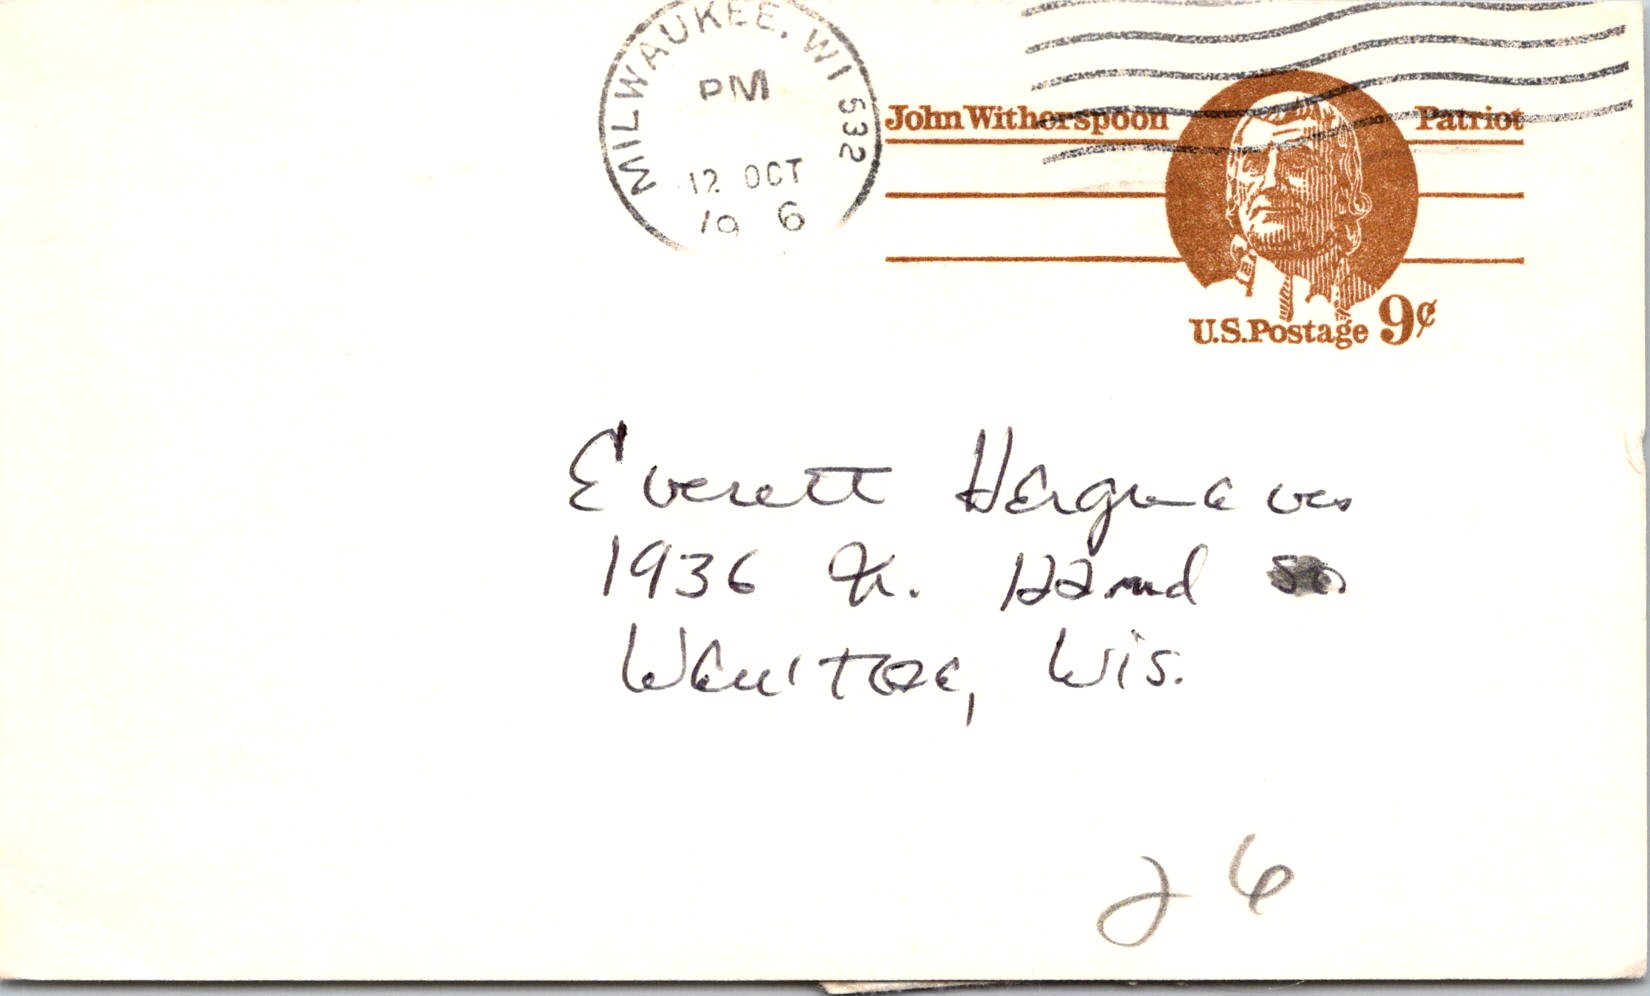 MILWAUKEE, WI 532
PM
12 OCT
19 6
John Witherspoon Patriot
U.S. Postage 9¢
Everett Hargraves
1936 N. 122nd
Wauwtosa, Wis.
26